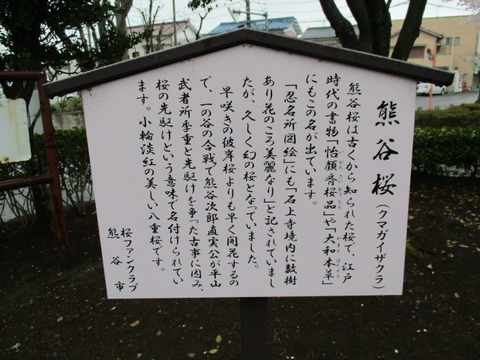 熊谷桜(クマガイザクラ)
熊谷桜は古くから知られた桜で、江戸
時代の書物「怡顔斉桜品」や「大和本草」
にもこの名が出ています。
「忍名所図絵」にも「石上寺境内に数樹
あり花のころ美麗なり」と記されていまし
たが、久しく幻の桜となっていました。
早咲きの彼岸桜よりも早く開花するの
で、一の谷の合戦で熊谷次郎直実公が平山
武者所季重と先駆けを争った古事に因み、
桜の先駆けという意味で名付けられてい
ます。小輪淡紅の美しい八重桜です。
桜ファンクラブ
熊谷市